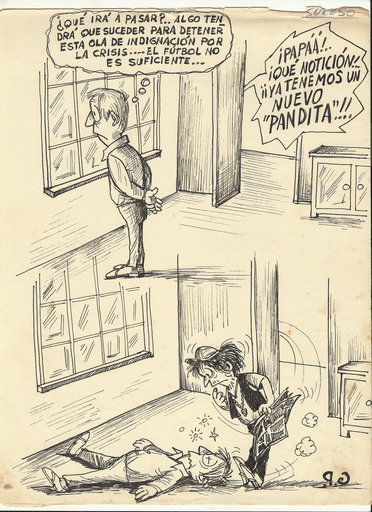 SUCESO
¿QUÉ IRÁ Á PASAR?.. ALGO TEN
DRÁ QUE SUCEDER PARA DETENER
ESTA OLA DE INDIGNACIÓN POR
LA CRISIS.... EL FÚTBOL NO
ES SUFICIENTE...
¡PAPAÁ!..
¡QUÉ NOTICIÓN!
¡¡YA TENEMOS UN
NUEVO
"PANDITA"!!....